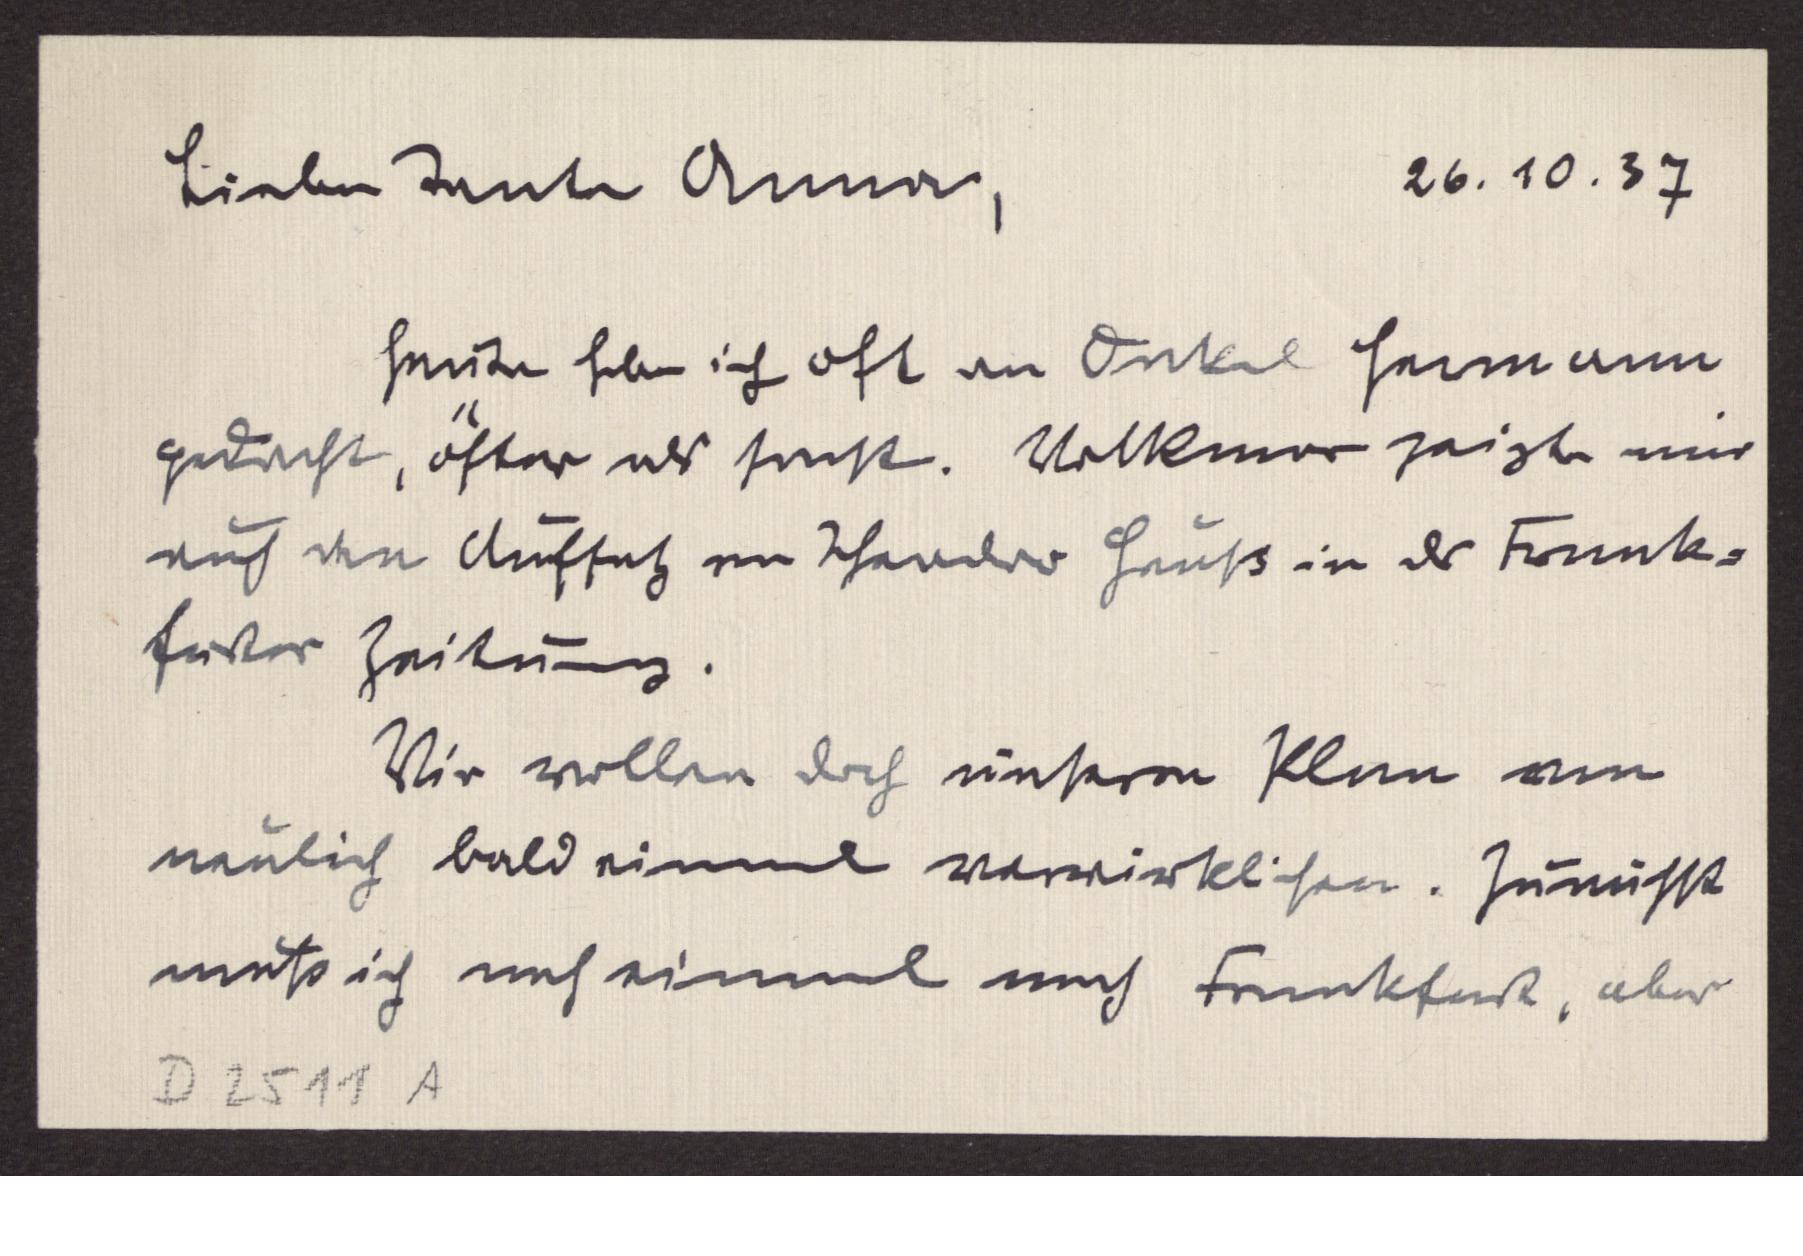 Liebe Tante Anna,
26.10.37
heute habe ich oft an Onkel Hermann
gedacht, öfter als sonst. Volkmar zeigte mir
auch den Aufsatz von Theodor Heuß in der Frank=
furter Zeitung.
Wir wollen doch unseren Plan von
neulich bald einmal verwirklichen. Zunächst
muß ich noch einmal nach Frankfurt, aber
D 2511 A